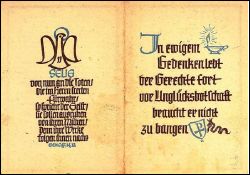 SELIG
von nun an die Toten,
die im Herrn sterben
Fürwahr,
so spricht der Geist,
sie sollen ausruhen
von ihren Mühen
denn ihre Werke
folgen ihnen nach
In ewigem
Gedenken lebt
der Gerechte fort
vor Unglücksbotschaft
braucht er nicht
zu bangen